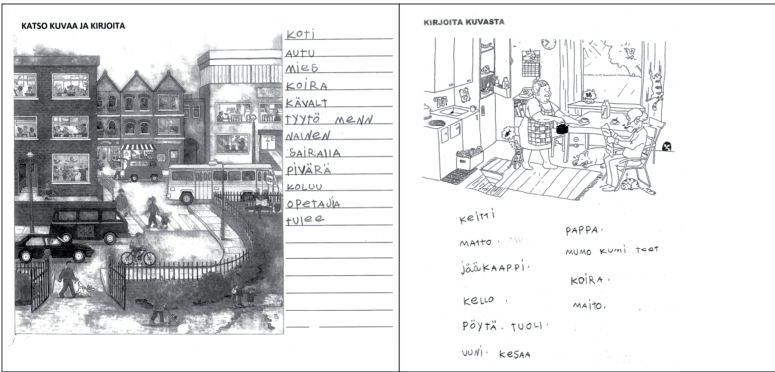 KATSO KUVAA JA KIRJOITA
KOTI
AUTU
MIES
KOIRA
KÄVALT
TYYTÖ MENN
NAINEN
SAIRALLA
PIVÄRÄ
KOLUU
OPETAJIA
TULEE
KIRJOITA KUVASTA
KEITTI
MAITO.
JÄÄKAAPPI.
KELLO.
PÖYTÄ. TUOLI.
UUNI. KESAA
PAPPA.
MUMO KUMI TEET
KOIRA.
MAITO.